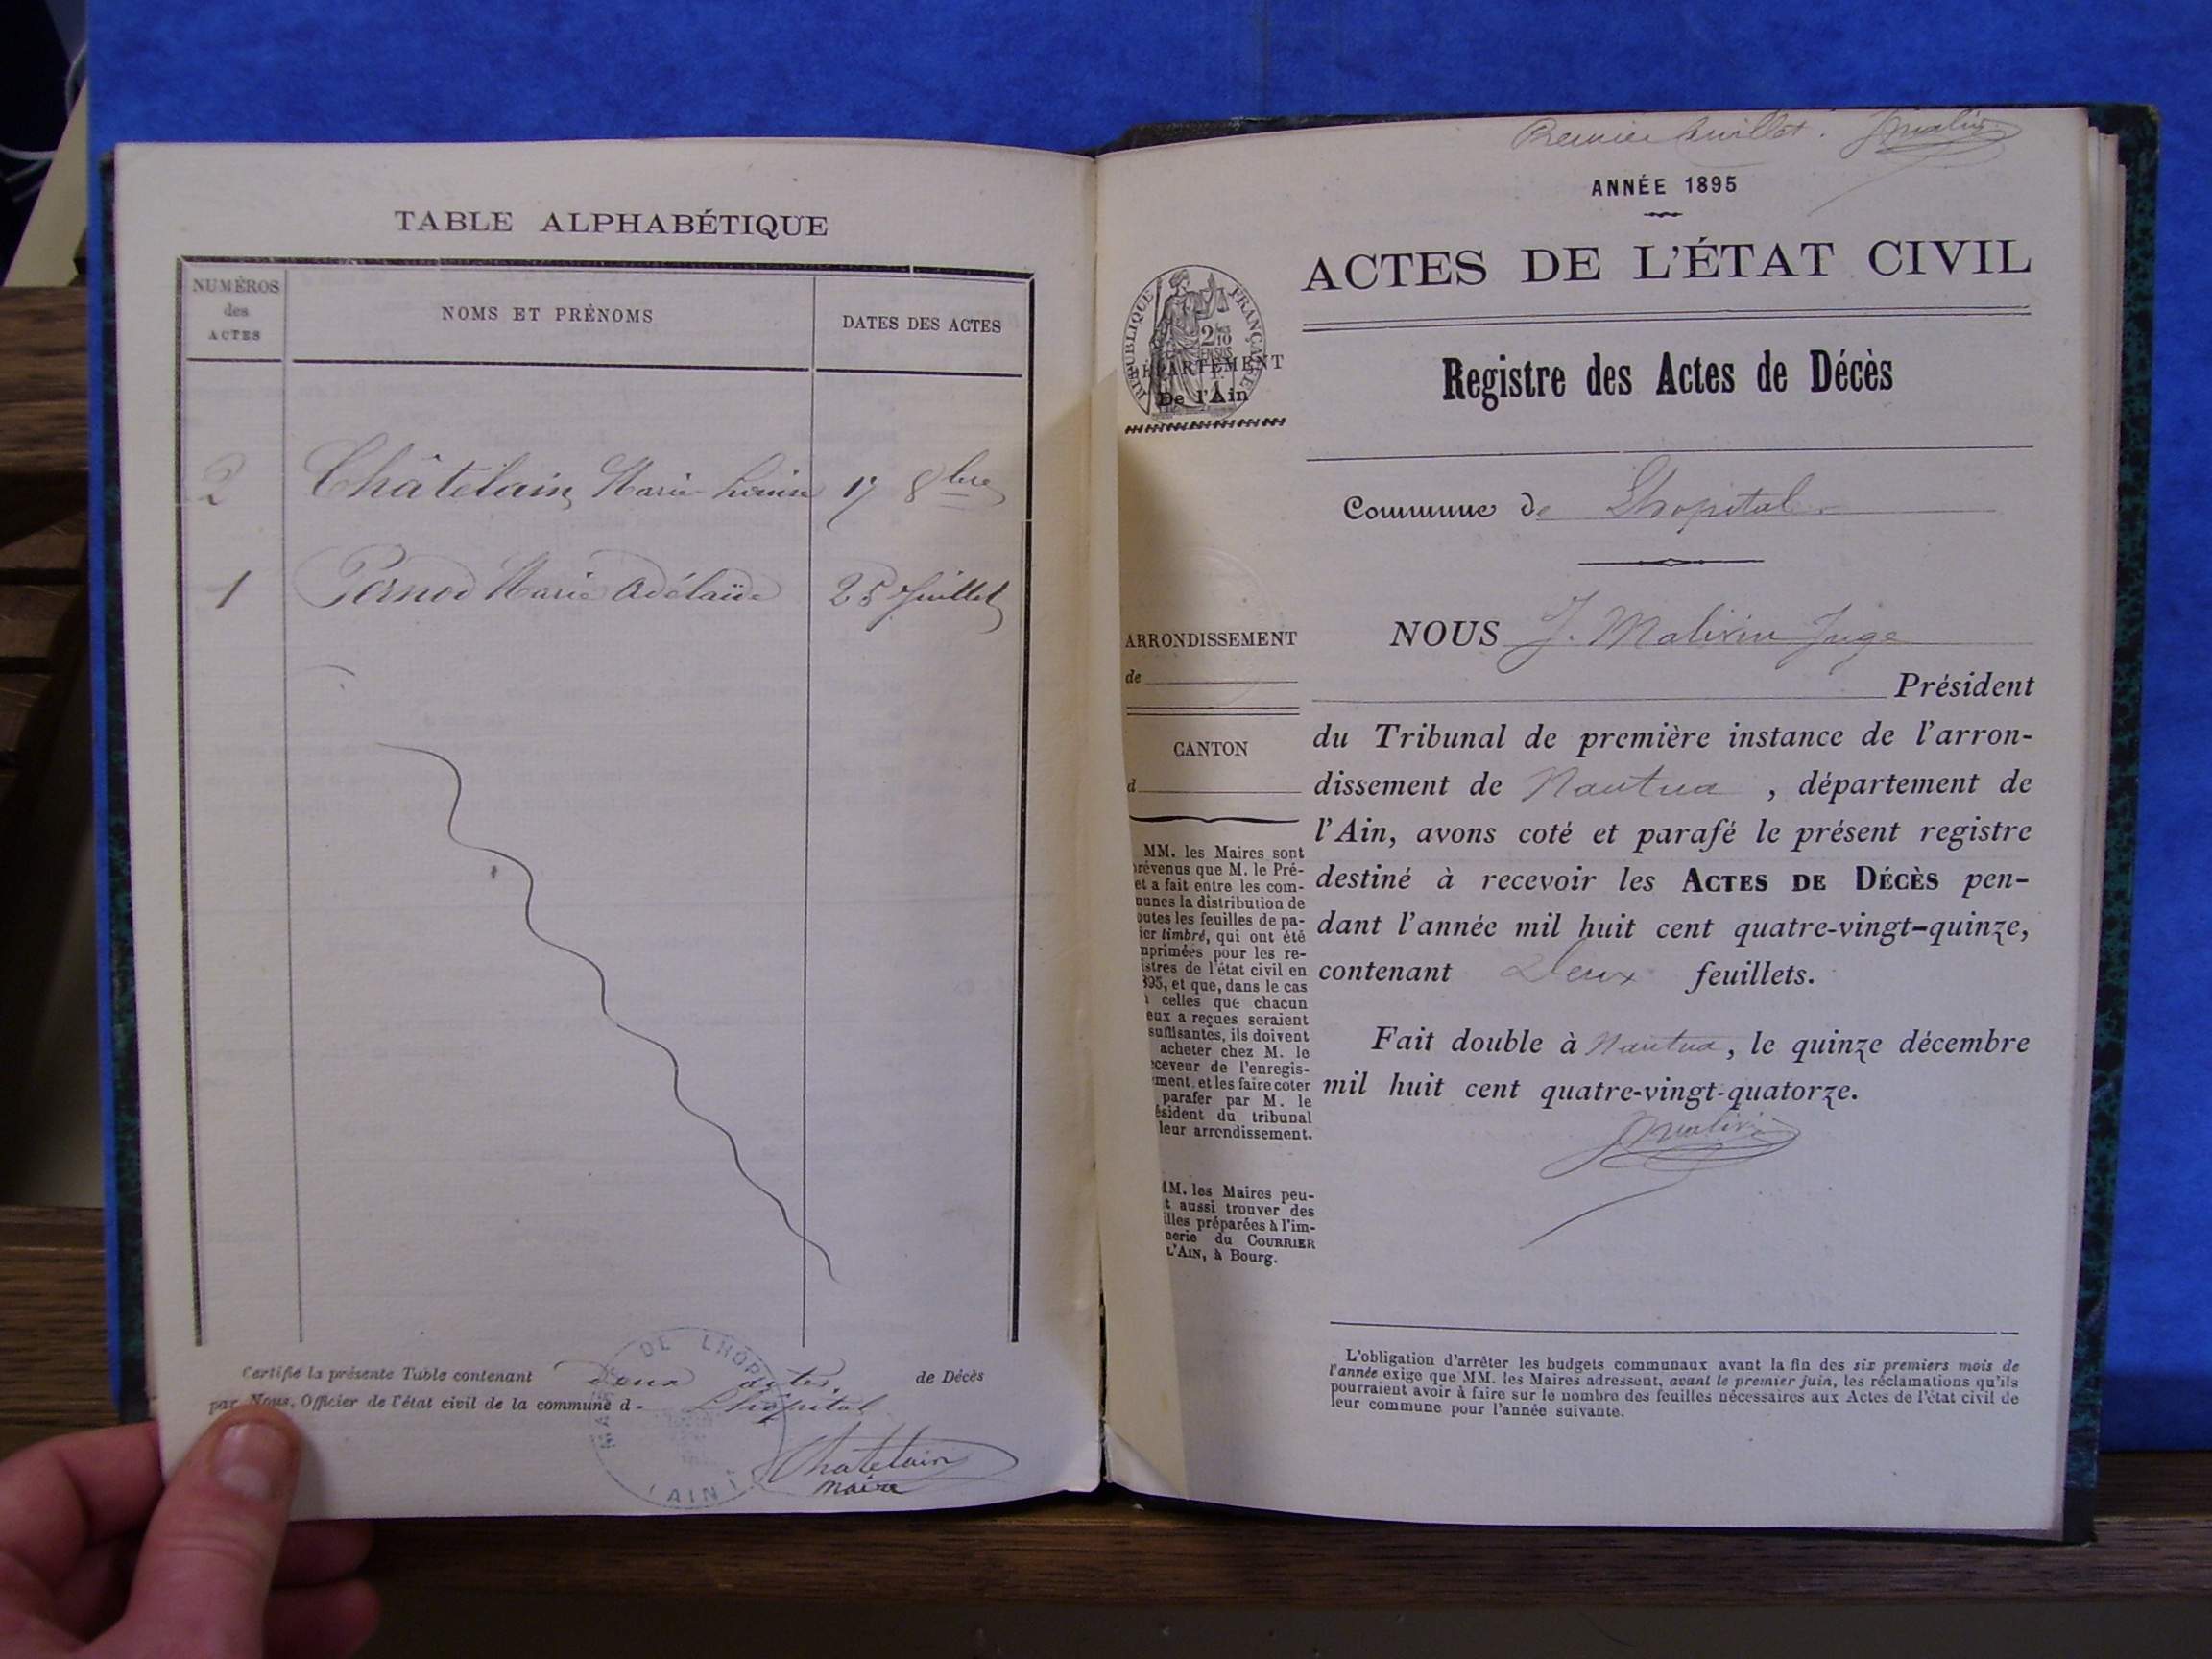 TABLE ALPHABÉTIQUE
NUMÉROS
des
ACTES
NOMS ET PRÉNOMS
DATES DES ACTES
2 Châtelain Marie Louise 17 8bre
1 Pernod Marie Adélaïde 25 Juillet
Certifié la présente Table contenant deux actes de Décès
par Nous, Officier de l'état civil de la commune d - Lhôpital
DE LHÔP
AIN
Chatelain
maire
Premier feuillet. JMalivin
ANNÉE 1895
ACTES DE L'ÉTAT CIVIL
RÉPUBLIQUE FRANÇAISE
2/10
EN SUS
DÉPARTEMENT
De l'Ain
Registre des Actes de Décès
Commune de Lhopital
NOUS J. Malivin Juge
Président
du Tribunal de première instance de l'arron-
dissement de Nantua, département de
l'Ain, avons coté et parafé le présent registre
destiné à recevoir les ACTES DE DÉCÈS pen-
dant l'année mil huit cent quatre-vingt-quinze,
contenant Deux feuillets.
Fait double à Nantua, le quinze décembre
mil huit cent quatre-vingt-quatorze.
JMalivin
ARRONDISSEMENT
de
CANTON
d
MM. les Maires sont
révenus que M. le Pré-
et a fait entre les com-
unes la distribution de
outes les feuilles de pa-
ier timbré, qui ont été
mprimées pour les re-
istres de l'état civil en
895, et que, dans le cas
celles que chacun
eux a reçues seraient
suffisantes, ils doivent
acheter chez M. le
eceveur de l'enregis-
ment, et les faire coter
parafer par M. le
ésident du tribunal
leur arrondissement.
MM. les Maires peu-
t aussi trouver des
illes préparées à l'im-
merie du COURRIER
L'AIN, à Bourg.
L'obligation d'arrêter les budgets communaux avant la fin des six premiers mois de
l'année exige que MM. les Maires adressent, avant le premier juin, les réclamations qu'ils
pourraient avoir à faire sur le nombre des feuilles nécessaires aux Actes de l'état civil de
leur commune pour l'année suivante.